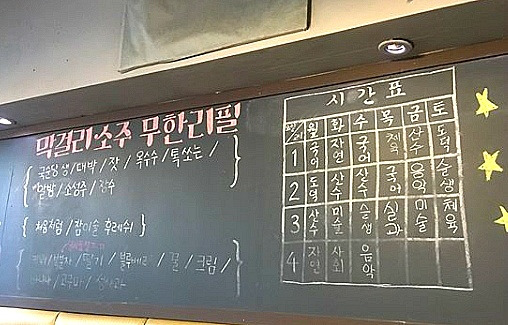 막걸리소주 무한리필
{ 국순당 생 / 대박 / 잣 / 옥수수 / 톡쏘는 /
알밤 / 소성주 / 장수 }
{ 처음처럼 / 참이슬 후레쉬 / }
딸기 / 블루베리 / 꿀 / 크림 /
시간표
월 화 수 목 금 토
1 국어 자연 국어 체육 산수 도덕
2 도덕 산수 산수 국어 음악 슬생
3 산수 미술 슬생 실과 미술 체육
4 자연 사회 음악